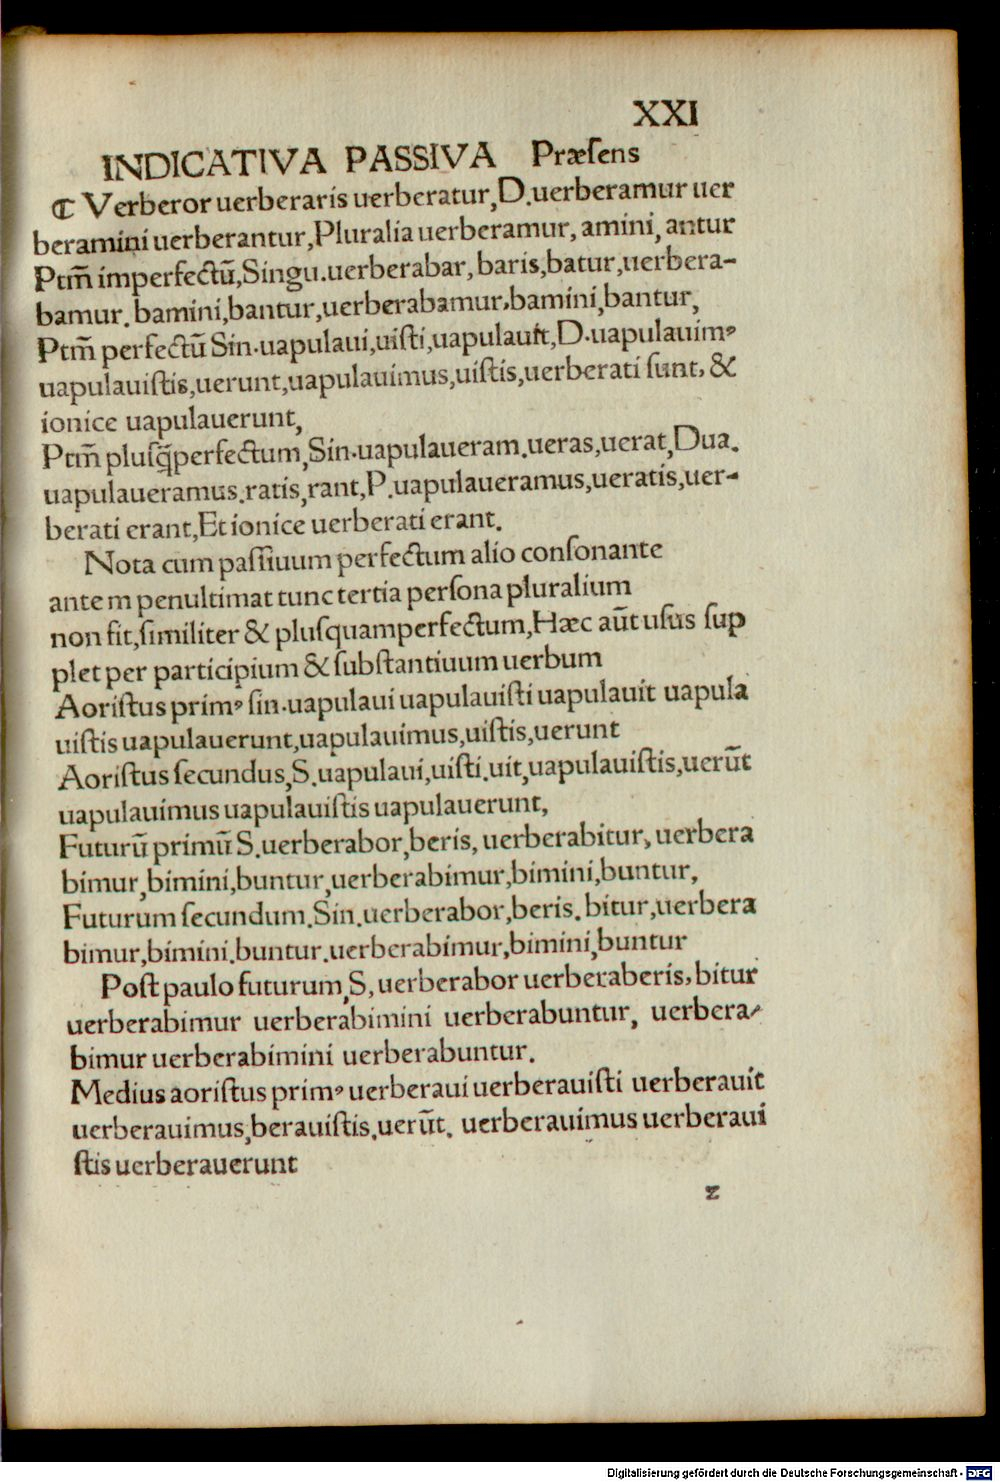 XXI
INDICATIVA PASSIVA Præſens
ℂ Verberor uerberaris uerberatur, D. uerberamur uer
beramini uerberantur, Pluralia uerberamur, amini, antur
Ptm̃ imperfectũ, Singu. uerberabar, baris, batur, uerbera-
bamur. bamini, bantur, uerberabamur, bamini, bantur,
Ptm̃ perfectũ Sin. uapulaui, uiſti, uapulauit, D. uapulauimꝰ
uapulauiſtis, uerunt, uapulauimus, uiſtis, uerberati ſunt, &
ionice uapulauerunt,
Ptm̃ pluſq̃perfectum, Sin. uapulaueram. ueras, uerat, Dua.
uapulaueramus. ratis, rant, P. uapulaueramus, ueratis, uer-
berati erant, Et ionice uerberati erant.
Nota cum paſſiuum perfectum alio conſonante
ante m penultimat tunc tertia perſona pluralium
non fit, ſimiliter & pluſquamperfectum, Hæc aũt uſus ſup
plet per participium & ſubſtantiuum uerbum
Aoriſtus primꝰ ſin. uapulaui uapulauiſti uapulauit uapula
uiſtis uapulauerunt, uapulauimus, uiſtis, uerunt
Aoriſtus ſecundus, S. uapulaui, uiſti. uit, uapulauiſtis, uerũt
uapulauimus uapulauiſtis uapulauerunt,
Futurũ primũ S. uerberabor, beris, uerberabitur, uerbera
bimur, bimini, buntur, uerberabimur, bimini, buntur,
Futurum ſecundum. Sin. uerberabor, beris. bitur, uerbera
bimur, bimini. buntur. uerberabimur, bimini, buntur
Poſt paulo futurum, S, uerberabor uerberaberis, bitur
uerberabimur uerberabimini uerberabuntur, uerbera-
bimur uerberabimini uerberabuntur.
Medius aoriſtus primꝰ uerberaui uerberauiſti uerberauit
uerberauimus, berauiſtis, uerũt. uerberauimus uerberaui
ſtis uerberauerunt
z
Digitalisierung gefördert durch die Deutsche Forschungsgemeinschaft - DFG